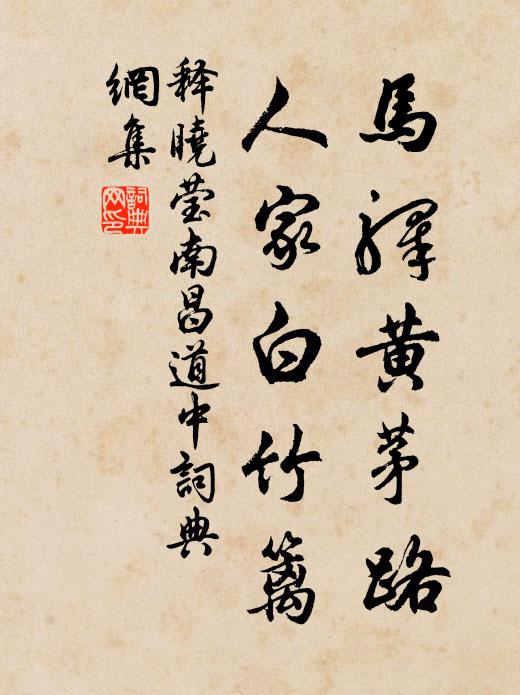 馬驛黃茅路
人家白竹籬
释曉莹南昌道中詞典
網集
詞典
网印